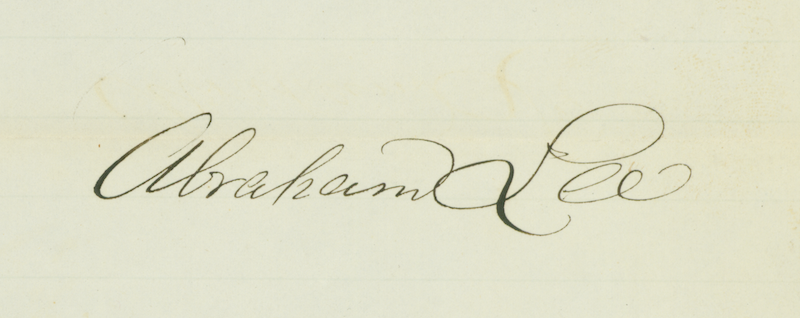 Abraham Lee